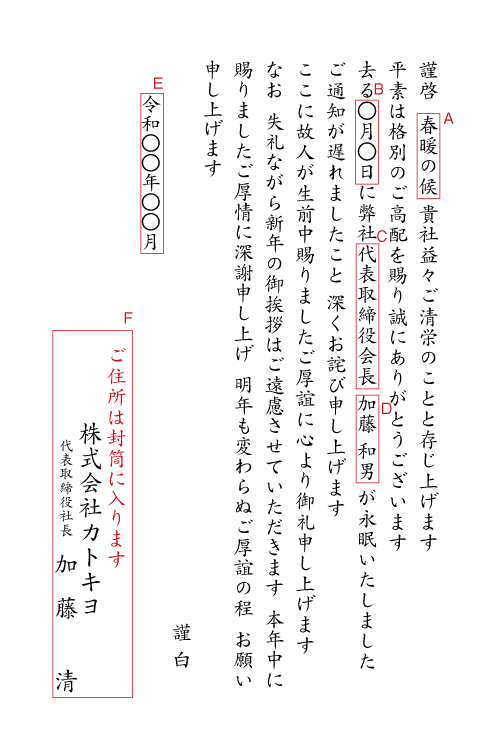 謹啓 春暖の候 貴社益々ご清栄のことと存じ上げます
A
平素は格別のご高配を賜り誠にありがとうございます
去る〇月〇日に弊社代表取締役会長 加藤 和男 が永眠いたしました
B
C
D
ご通知が遅れましたこと 深くお詫び申し上げます
ここに故人が生前中賜りましたご厚誼に心より御礼申し上げます
なお 失礼ながら新年の御挨拶はご遠慮させていただきます 本年中に
賜りましたご厚情に深謝申し上げ 明年も変わらぬご厚誼の程 お願い
申し上げます
謹白
E
令和〇〇年〇〇月
F
ご住所は封筒に入ります
株式会社カトキヨ
代表取締役社長 加藤 清